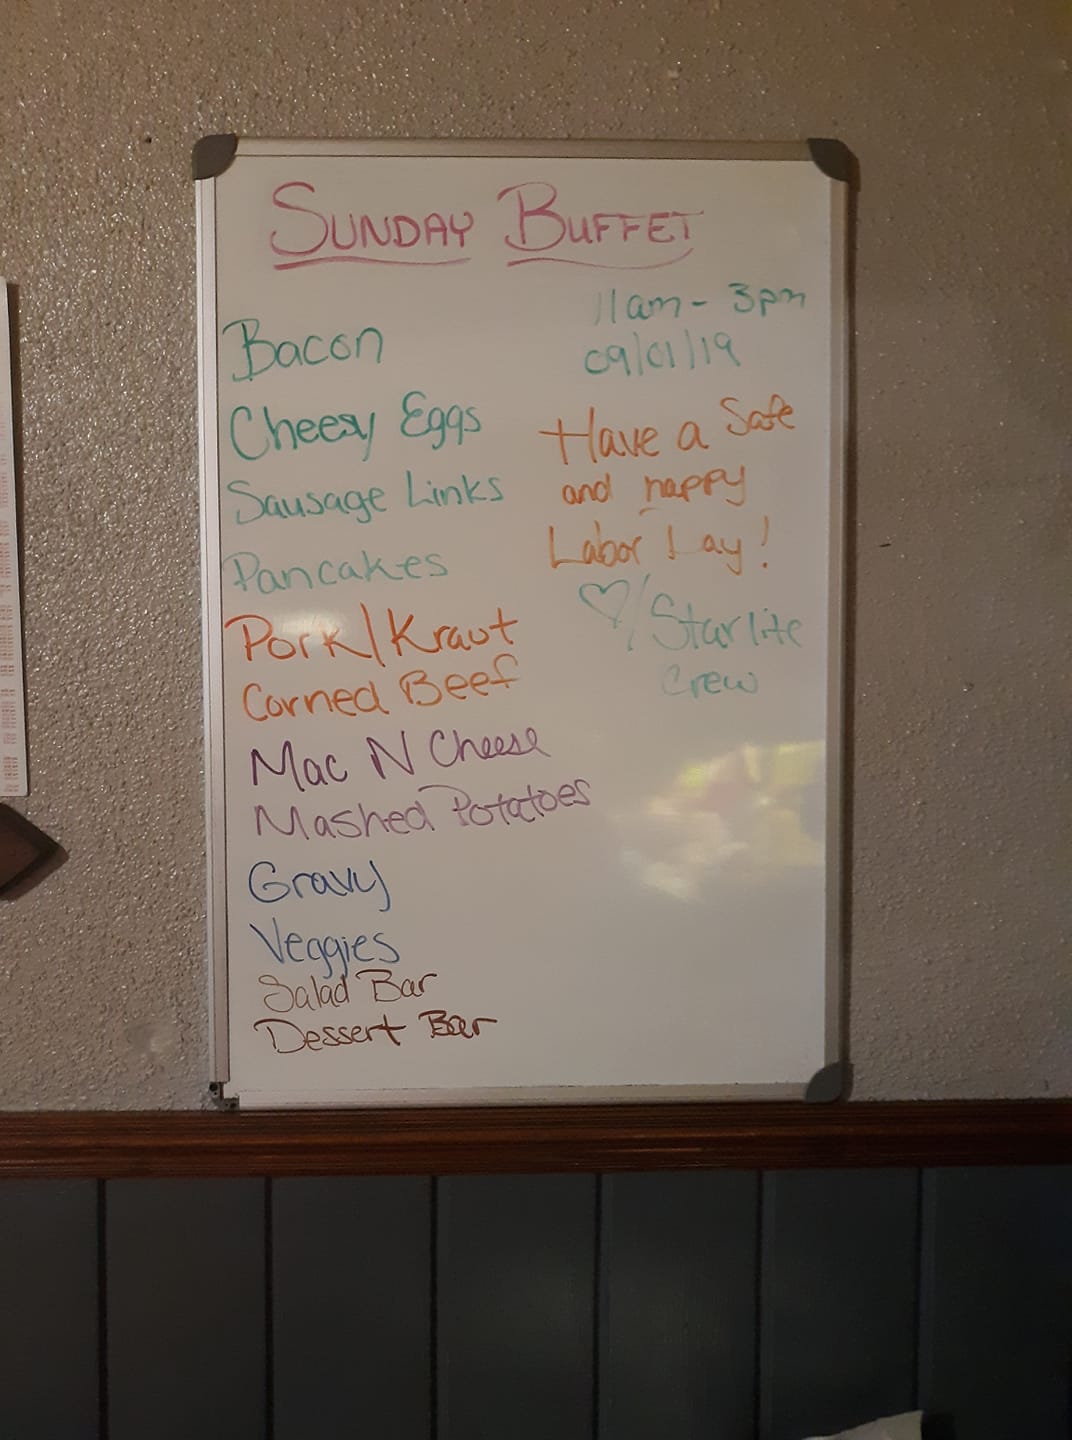 SUNDAY BUFFET
11am - 3pm
09/01/19
Bacon
Cheesy Eggs
Sausage Links
Pancakes
Pork/Kraut
Corned Beef
Mac N Cheese
Mashed Potatoes
Gravy
Veggies
Salad Bar
Dessert Bar
Have a Safe
and happy
Labor Day!
♡/Starlite
Crew